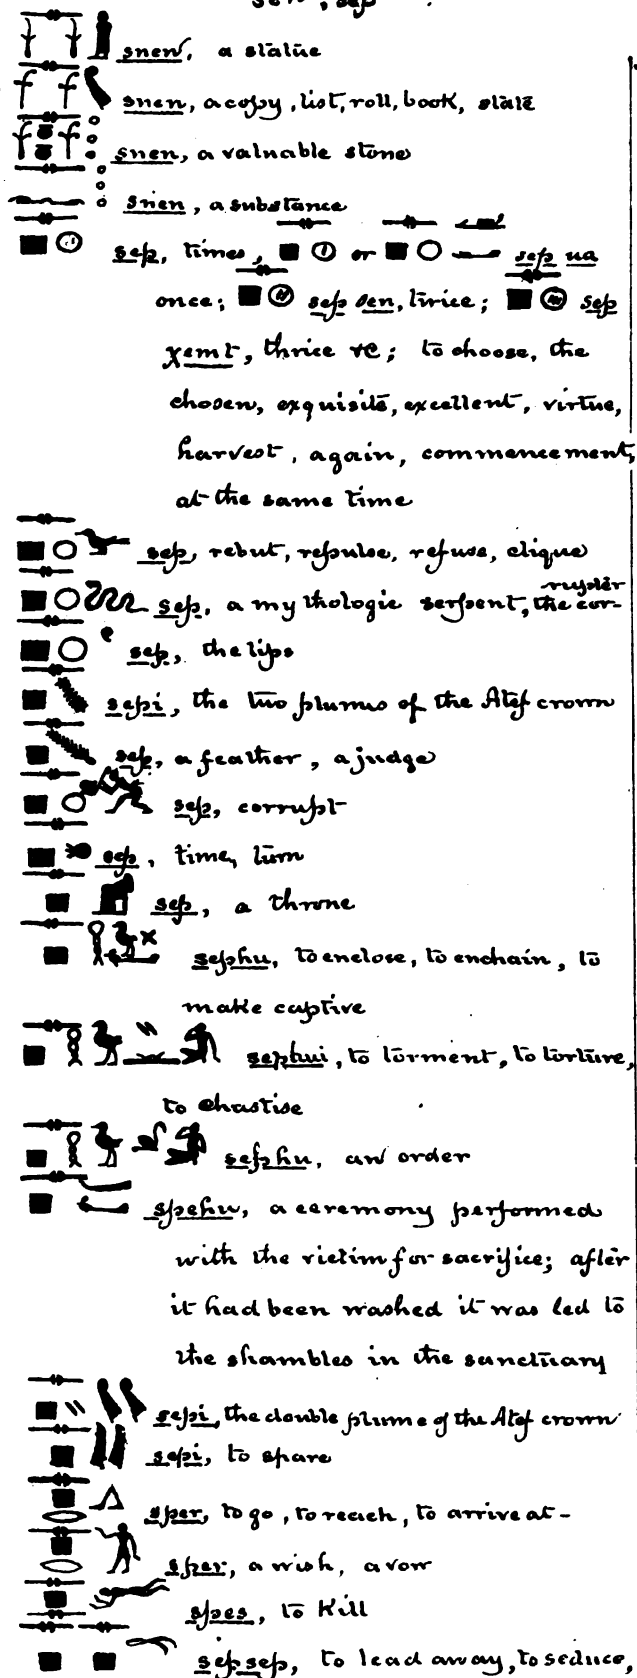 sen, sep
snen, a statue
snen, a copy, list, roll, book, state
snen, a valuable stone
snen, a substance
sep, times, or sep ua
once; sep sen, twice; sep
χemt, thrice &c; to choose, the
chosen, exquisite, excellent, virtue,
harvest, again, commencement,
at the same time
sep, rebut, repulse, refuse, clique
sep, a mythologic serpent, the cor-rupter
sep, the lips
sepi, the two plumes of the Atef crown
sep, a feather, a judge
sep, corrupt
sep, time, turn
sep, a throne
sephu, to enclose, to enchain, to
make captive
sephui, to torment, to torture,
to chastise
sephu, an order
spehu, a ceremony performed
with the victim for sacrifice; after
it had been washed it was led to
the shambles in the sanctuary
sepi, the double plume of the Atef crown
sepi, to spare
sper, to go, to reach, to arrive at-
sper, a wish, a vow
spes, to kill
sepsep, to lead away, to seduce,